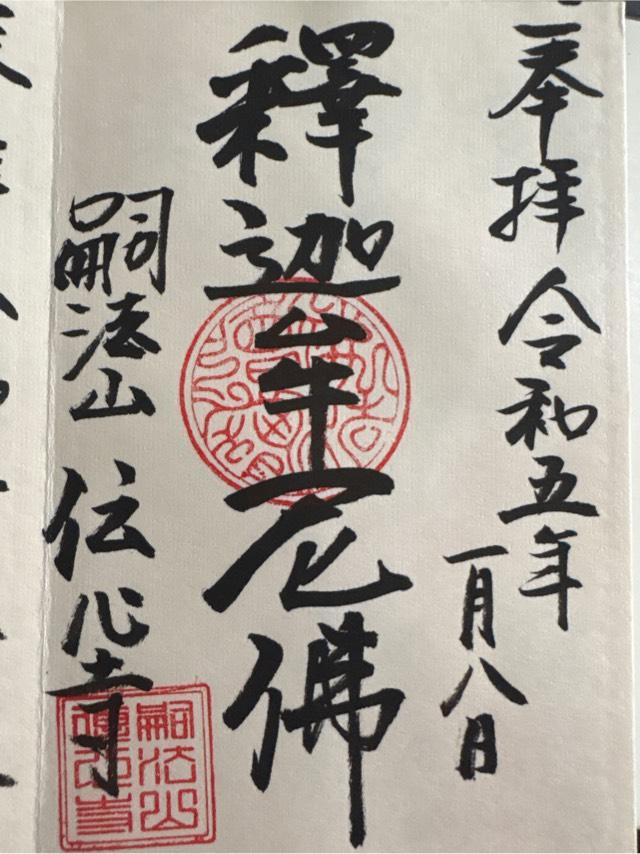 奉拝 令和五年
一月八日
釋迦牟尼佛
嗣法山 伝心寺
嗣法山
傳心寺